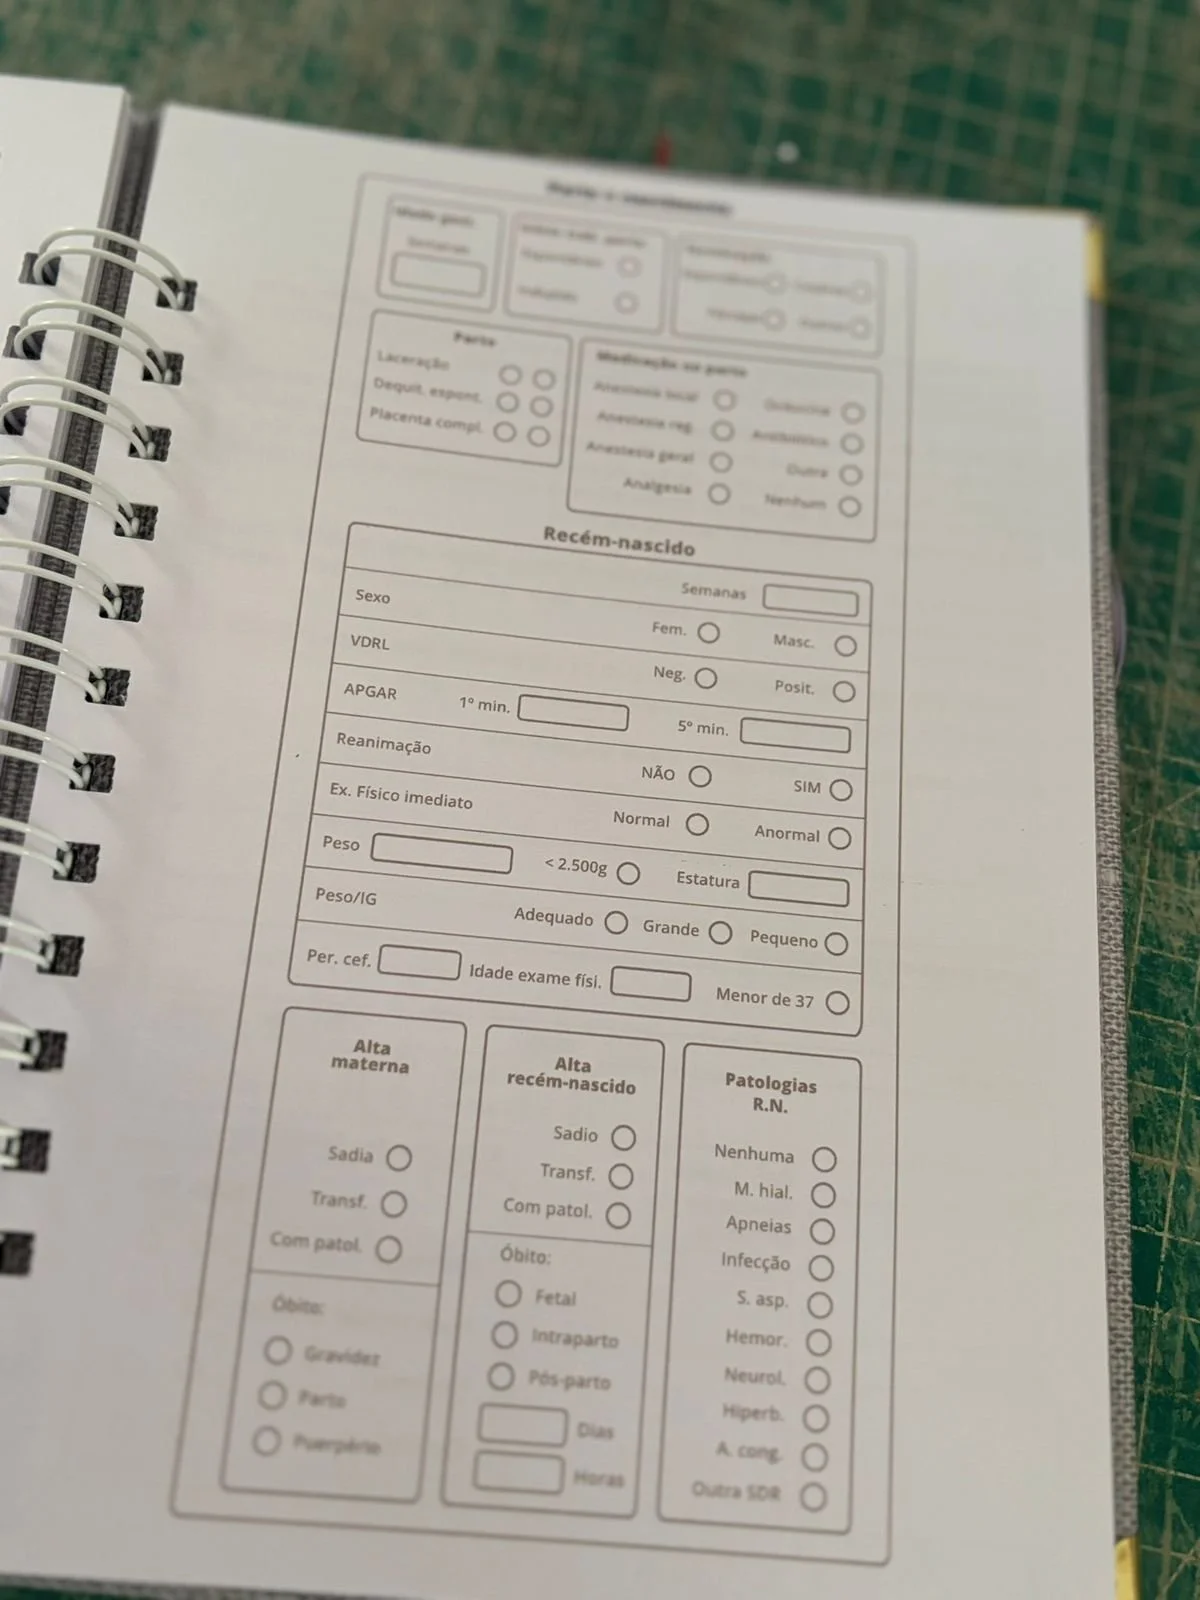 Semanas
Parto
Laceração
Dequit. espont.
Placenta compl.
Medicação no parto
Anestesia local
Anestesia reg.
Anestesia geral Outra
Analgesia Nenhum
Recém-nascido
Semanas
Sexo Fem. Masc.
VDRL Neg. Posit.
APGAR 1º min. 5º min.
Reanimação NÃO SIM
Ex. Físico imediato Normal Anormal
Peso < 2.500g Estatura
Peso/IG Adequado Grande Pequeno
Per. cef. Idade exame físi. Menor de 37
Alta
materna
Sadia
Transf.
Com patol.
Óbito:
Gravidez
Parto
Puerpério
Alta
recém-nascido
Sadio
Transf.
Com patol.
Óbito:
Fetal
Intraparto
Pós-parto
Dias
Horas
Patologias
R.N.
Nenhuma
M. hial.
Apneias
Infecção
S. asp.
Hemor.
Neurol.
Hiperb.
A. cong.
Outra SDR